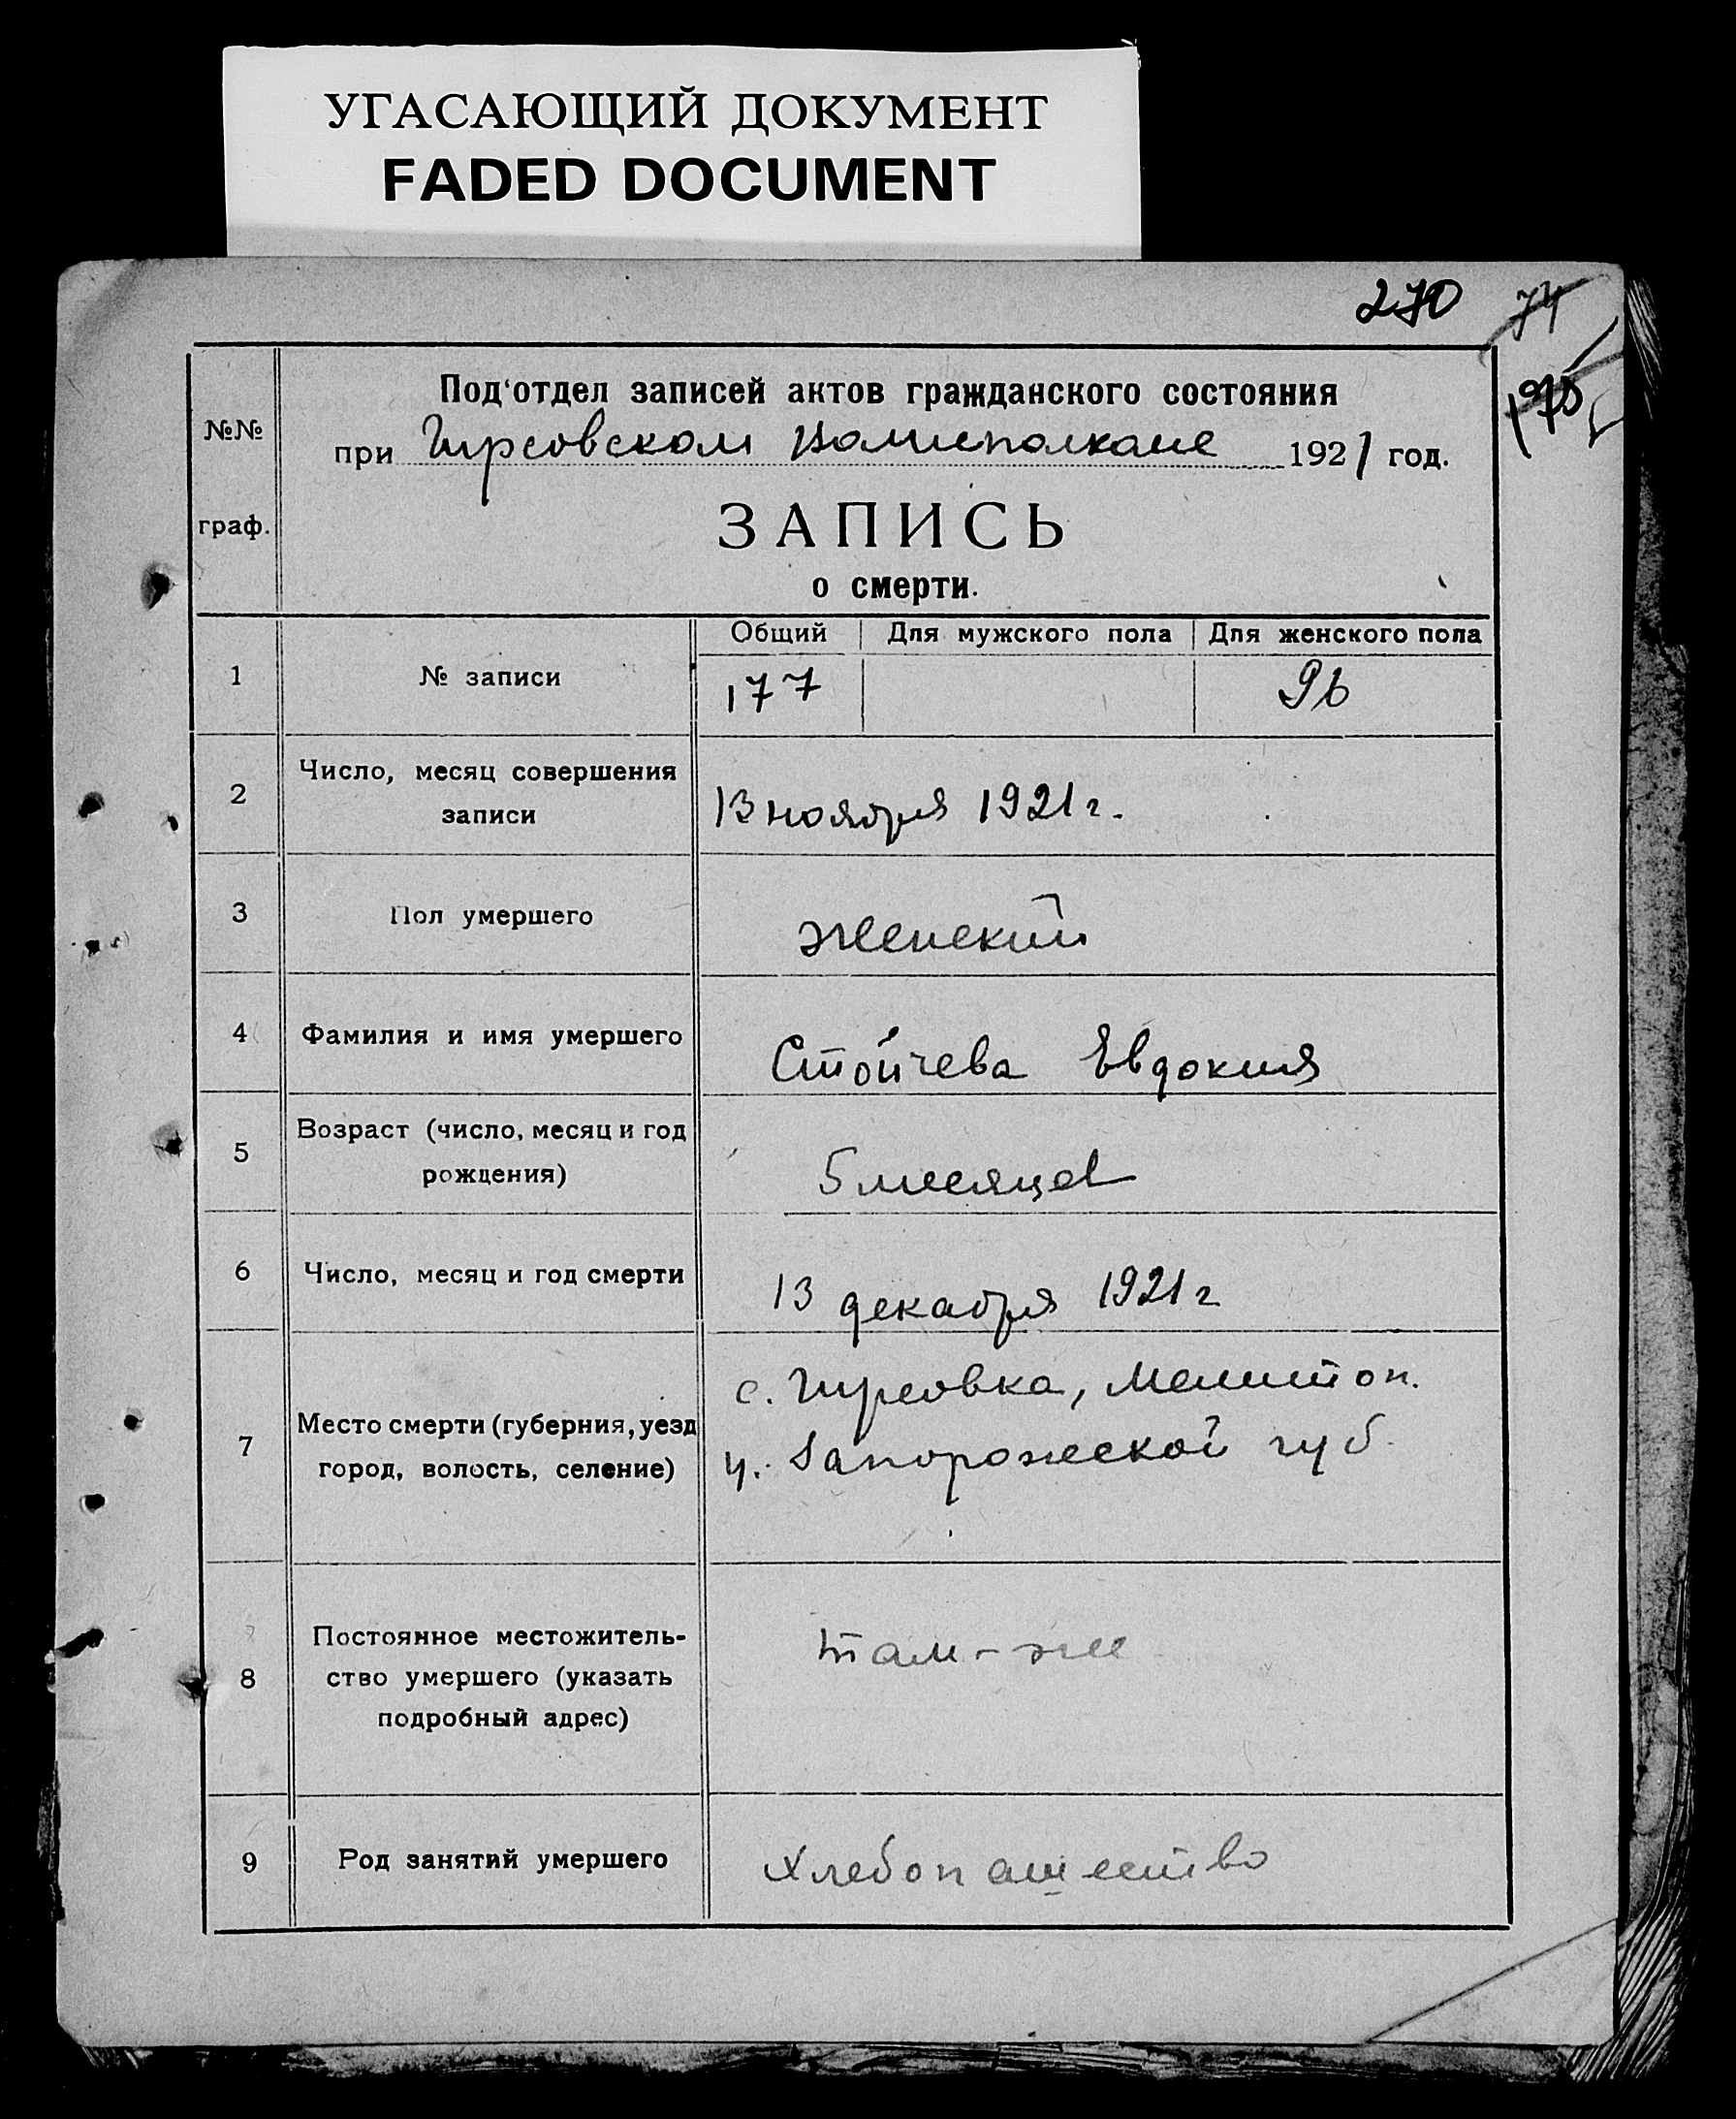 УГАСАЮЩИЙ ДОКУМЕНТ
FADED DOCUMENT
270 74
Под'отдел записей актов гражданского состояния
№№
при Гирсовском 1921 год.
граф.
ЗАПИСЬ
о смерти.
Общий Для мужского пола Для женского пола
1 № записи 177 96
2 Число, месяц совершения
записи 13 ноября 1921 г.
3 Пол умершего женский
4 Фамилия и имя умершего Стойчева Евдокия
5 Возраст (число, месяц и год
рождения) 5 месяцев
6 Число, месяц и год смерти 13 декабря 1921 г
7 Место смерти (губерния, уезд
город, волость, селение)
с. Гирсовка, Мелитоп.
у. Запорожской губ.
8 Постоянное местожитель-
ство умершего (указать
подробный адрес)
там-же
9 Род занятий умершего хлебопашество